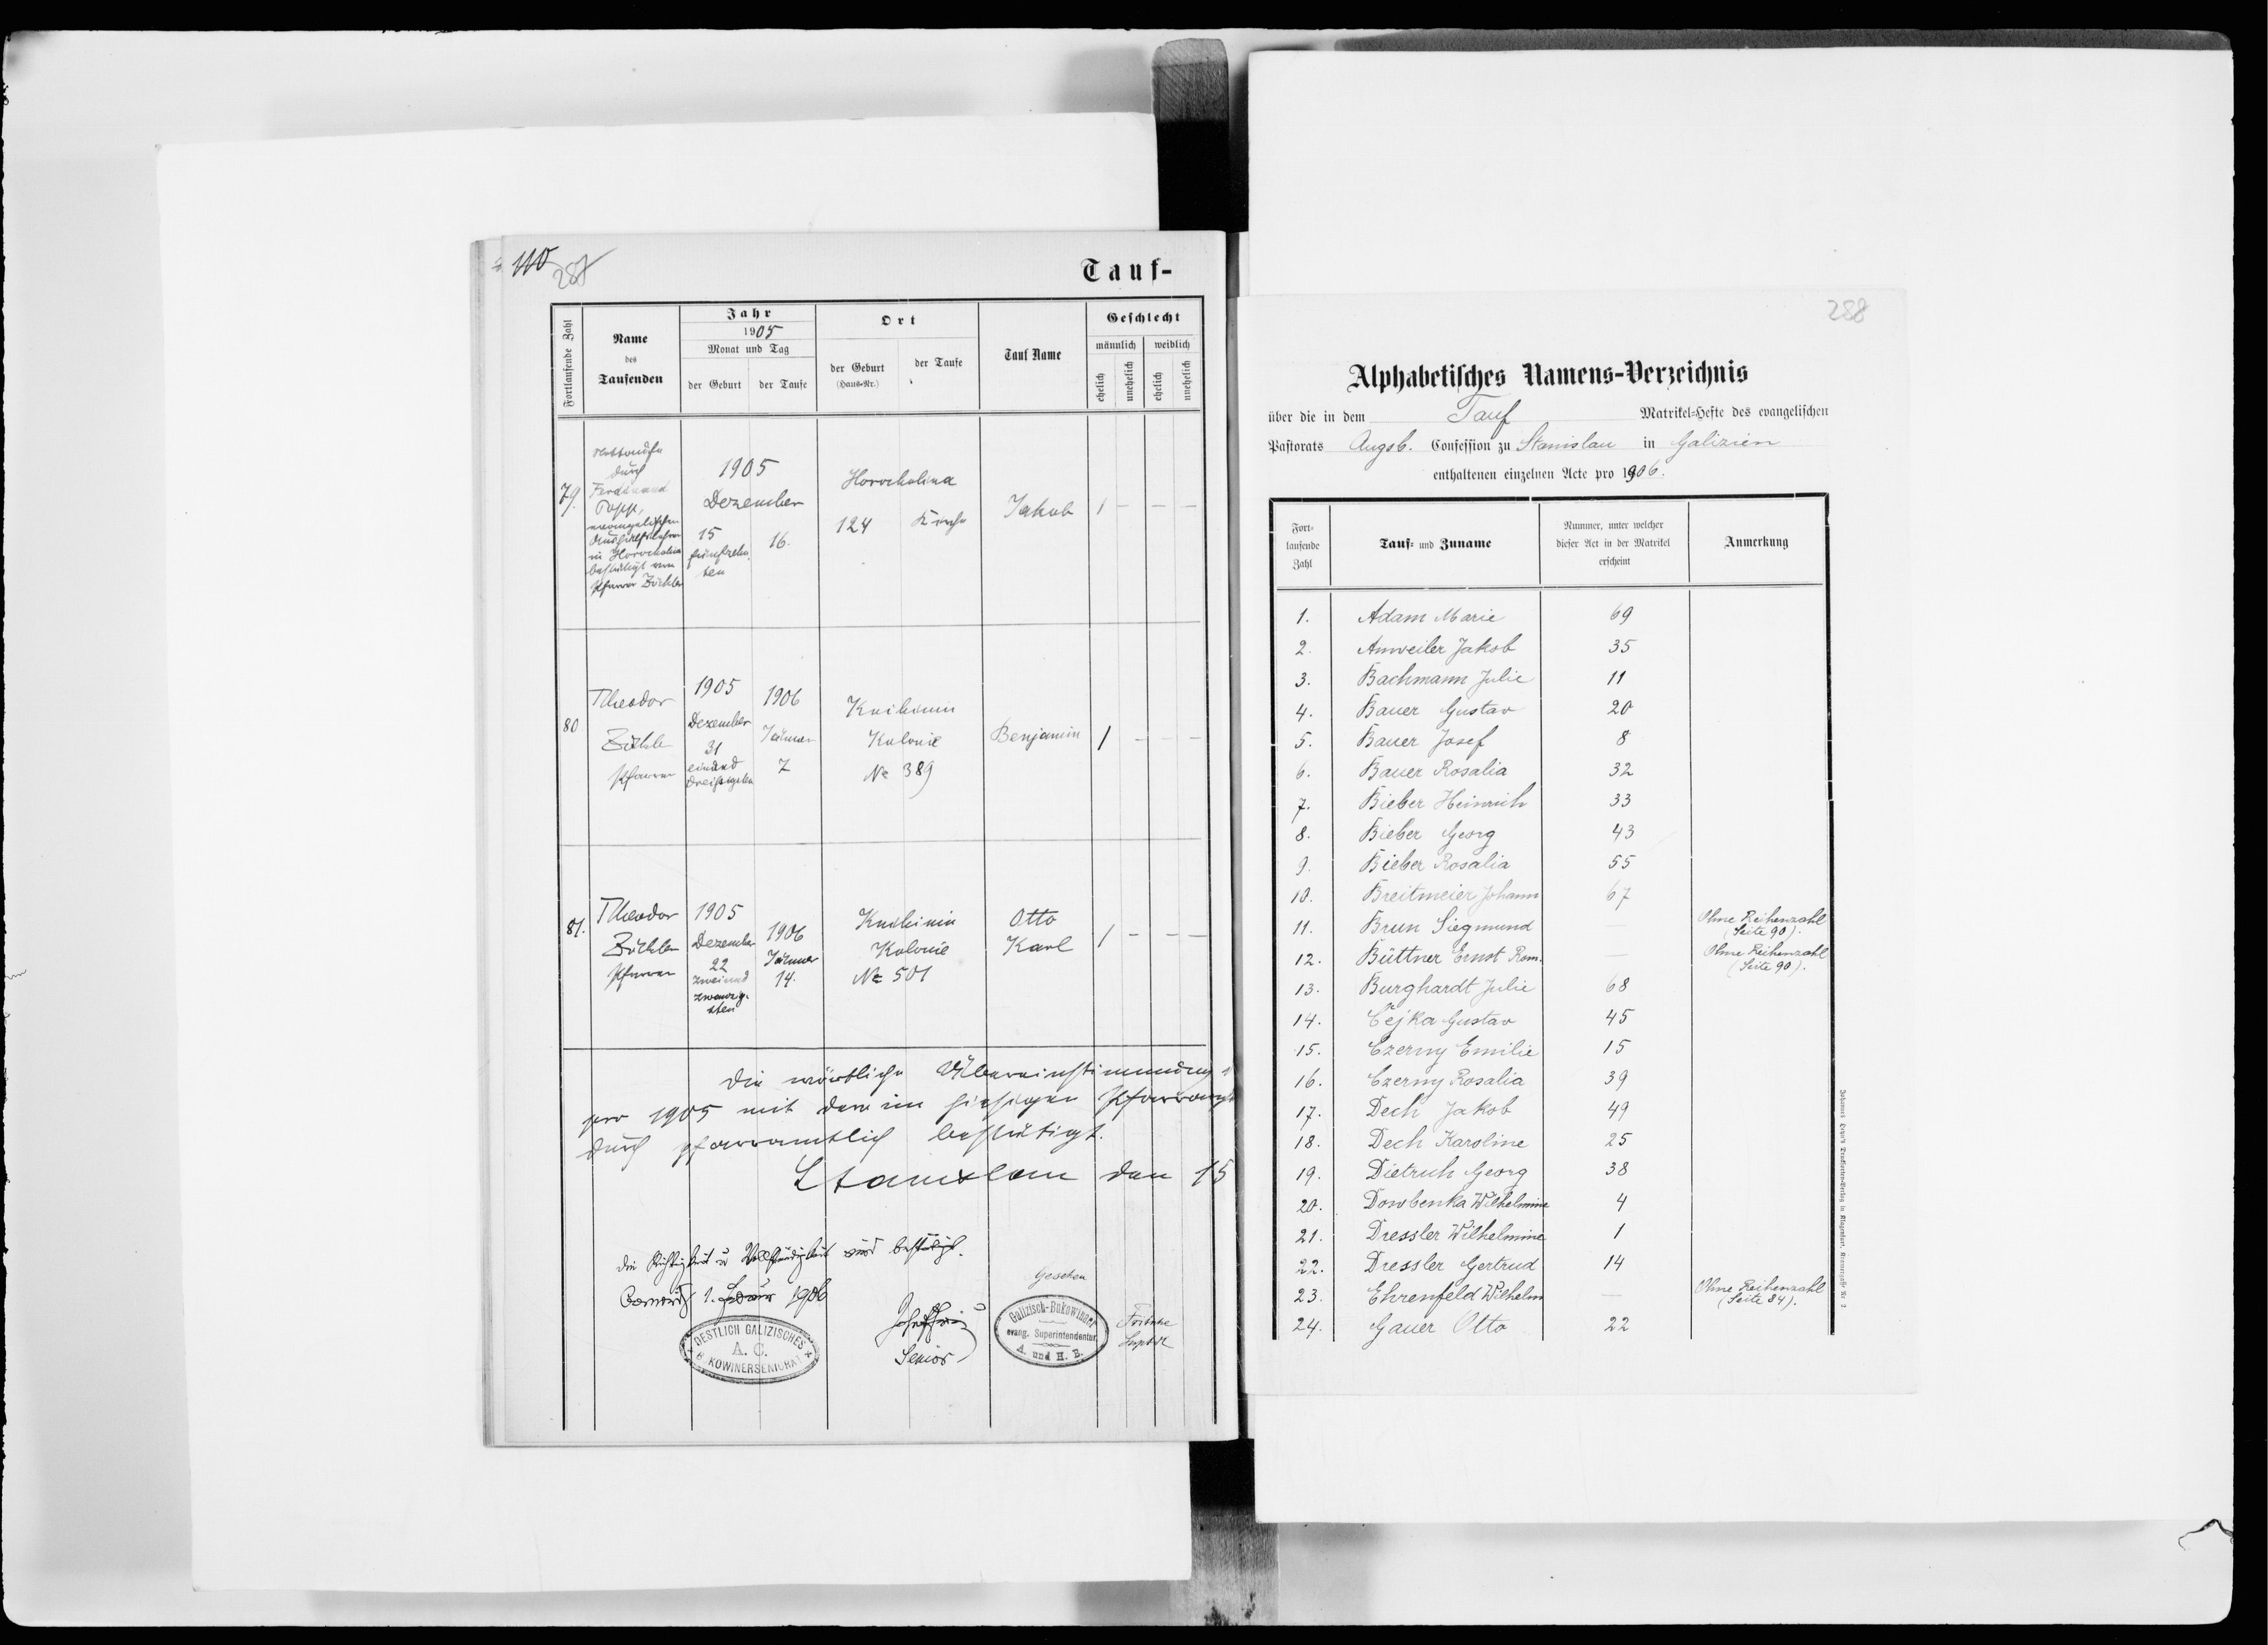 110
287
Tauf-
Fortlaufende Zahl
Name
des
Taufenden
Jahr
1905
Monat und Tag
der Geburt
der Taufe
Ort
der Geburt
(Haus-Nr.)
der Taufe
Tauf Name
Geschlecht
männlich
weiblich
ehelich
unehelich
ehelich
unehelich
79.
durch
Ferdinand
Popp,
evangelischen
in Horocholina
bestätigt vom
Pfarrer Zöckler
1905
Dezember
15
fünfzehn-
ten
16.
Horocholina
124
Kirche
Jakob
1 — — —
80
Theodor
Zöckler
Pfarrer
1905
Dezember
31
einund
dreißigsten
1906
Jänner
7
Knihinin
Kolonie
№ 389
Benjamin
1 — — —
81.
Theodor
Zöckler
Pfarrer
1905
Dezember
22
zweiund
zwanzig-
sten
1906
Jänner
14.
Knihinin
Kolonie
№ 501
Otto
Karl
1 — — —
Die wörtliche Übereinstimmung
pro 1905 mit dem im hiesigen
durch pfarramtlich bestätigt.
Stanislau den 15
Die Richtigkeit u Vollständigkeit wird bestätigt.
1. 1906
OESTLICH GALIZISCHES
A. C.
B KOWINERSENIORAT
Senior
Gesehen
Galizisch-Bukowinaer
evang. Superintendentur
A. und H. B.
Fritsche
Suptdt
288
Alphabetisches Namens-Verzeichnis
über die in dem Tauf Matrikel-Hefte des evangelischen
Pastorats Augsb. Confession zu Stanislau in Galizien
enthaltenen einzelnen Acte pro 1906.
Fort-
laufende
Zahl
Tauf- und Zuname
Nummer, unter welcher
dieser Act in der Matrikel
erscheint
Anmerkung
1. Adam Marie 69
2. Anweiler Jakob 35
3. Bachmann Julie 11
4. Bauer Gustav 20
5. Bauer Josef 8
6. Bauer Rosalia 32
7. Bieber Heinrich 33
8. Bieber Georg 43
9. Bieber Rosalia 55
10. Breitmeier Johann 67
11. Brun Siegmund — Ohne Reihenzahl
(Seite 90).
12. Büttner Ernst Rom. — Ohne Reihenzahl
(Seite 90).
13. Burghardt Julie 68
14. Čejka Gustav 45
15. Czerny Emilie 15
16. Czerny Rosalia 39
17. Dech Jakob 49
18. Dech Karoline 25
19. Dietrich Georg 38
20. Dowbenka Wilhelmine 4
21. Dressler Wilhelmine 1
22. Dressler Gertrud 14
23. Ehrenfeld Wilhelm — Ohne Reihenzahl
(Seite 84).
24. Gauer Otto 22